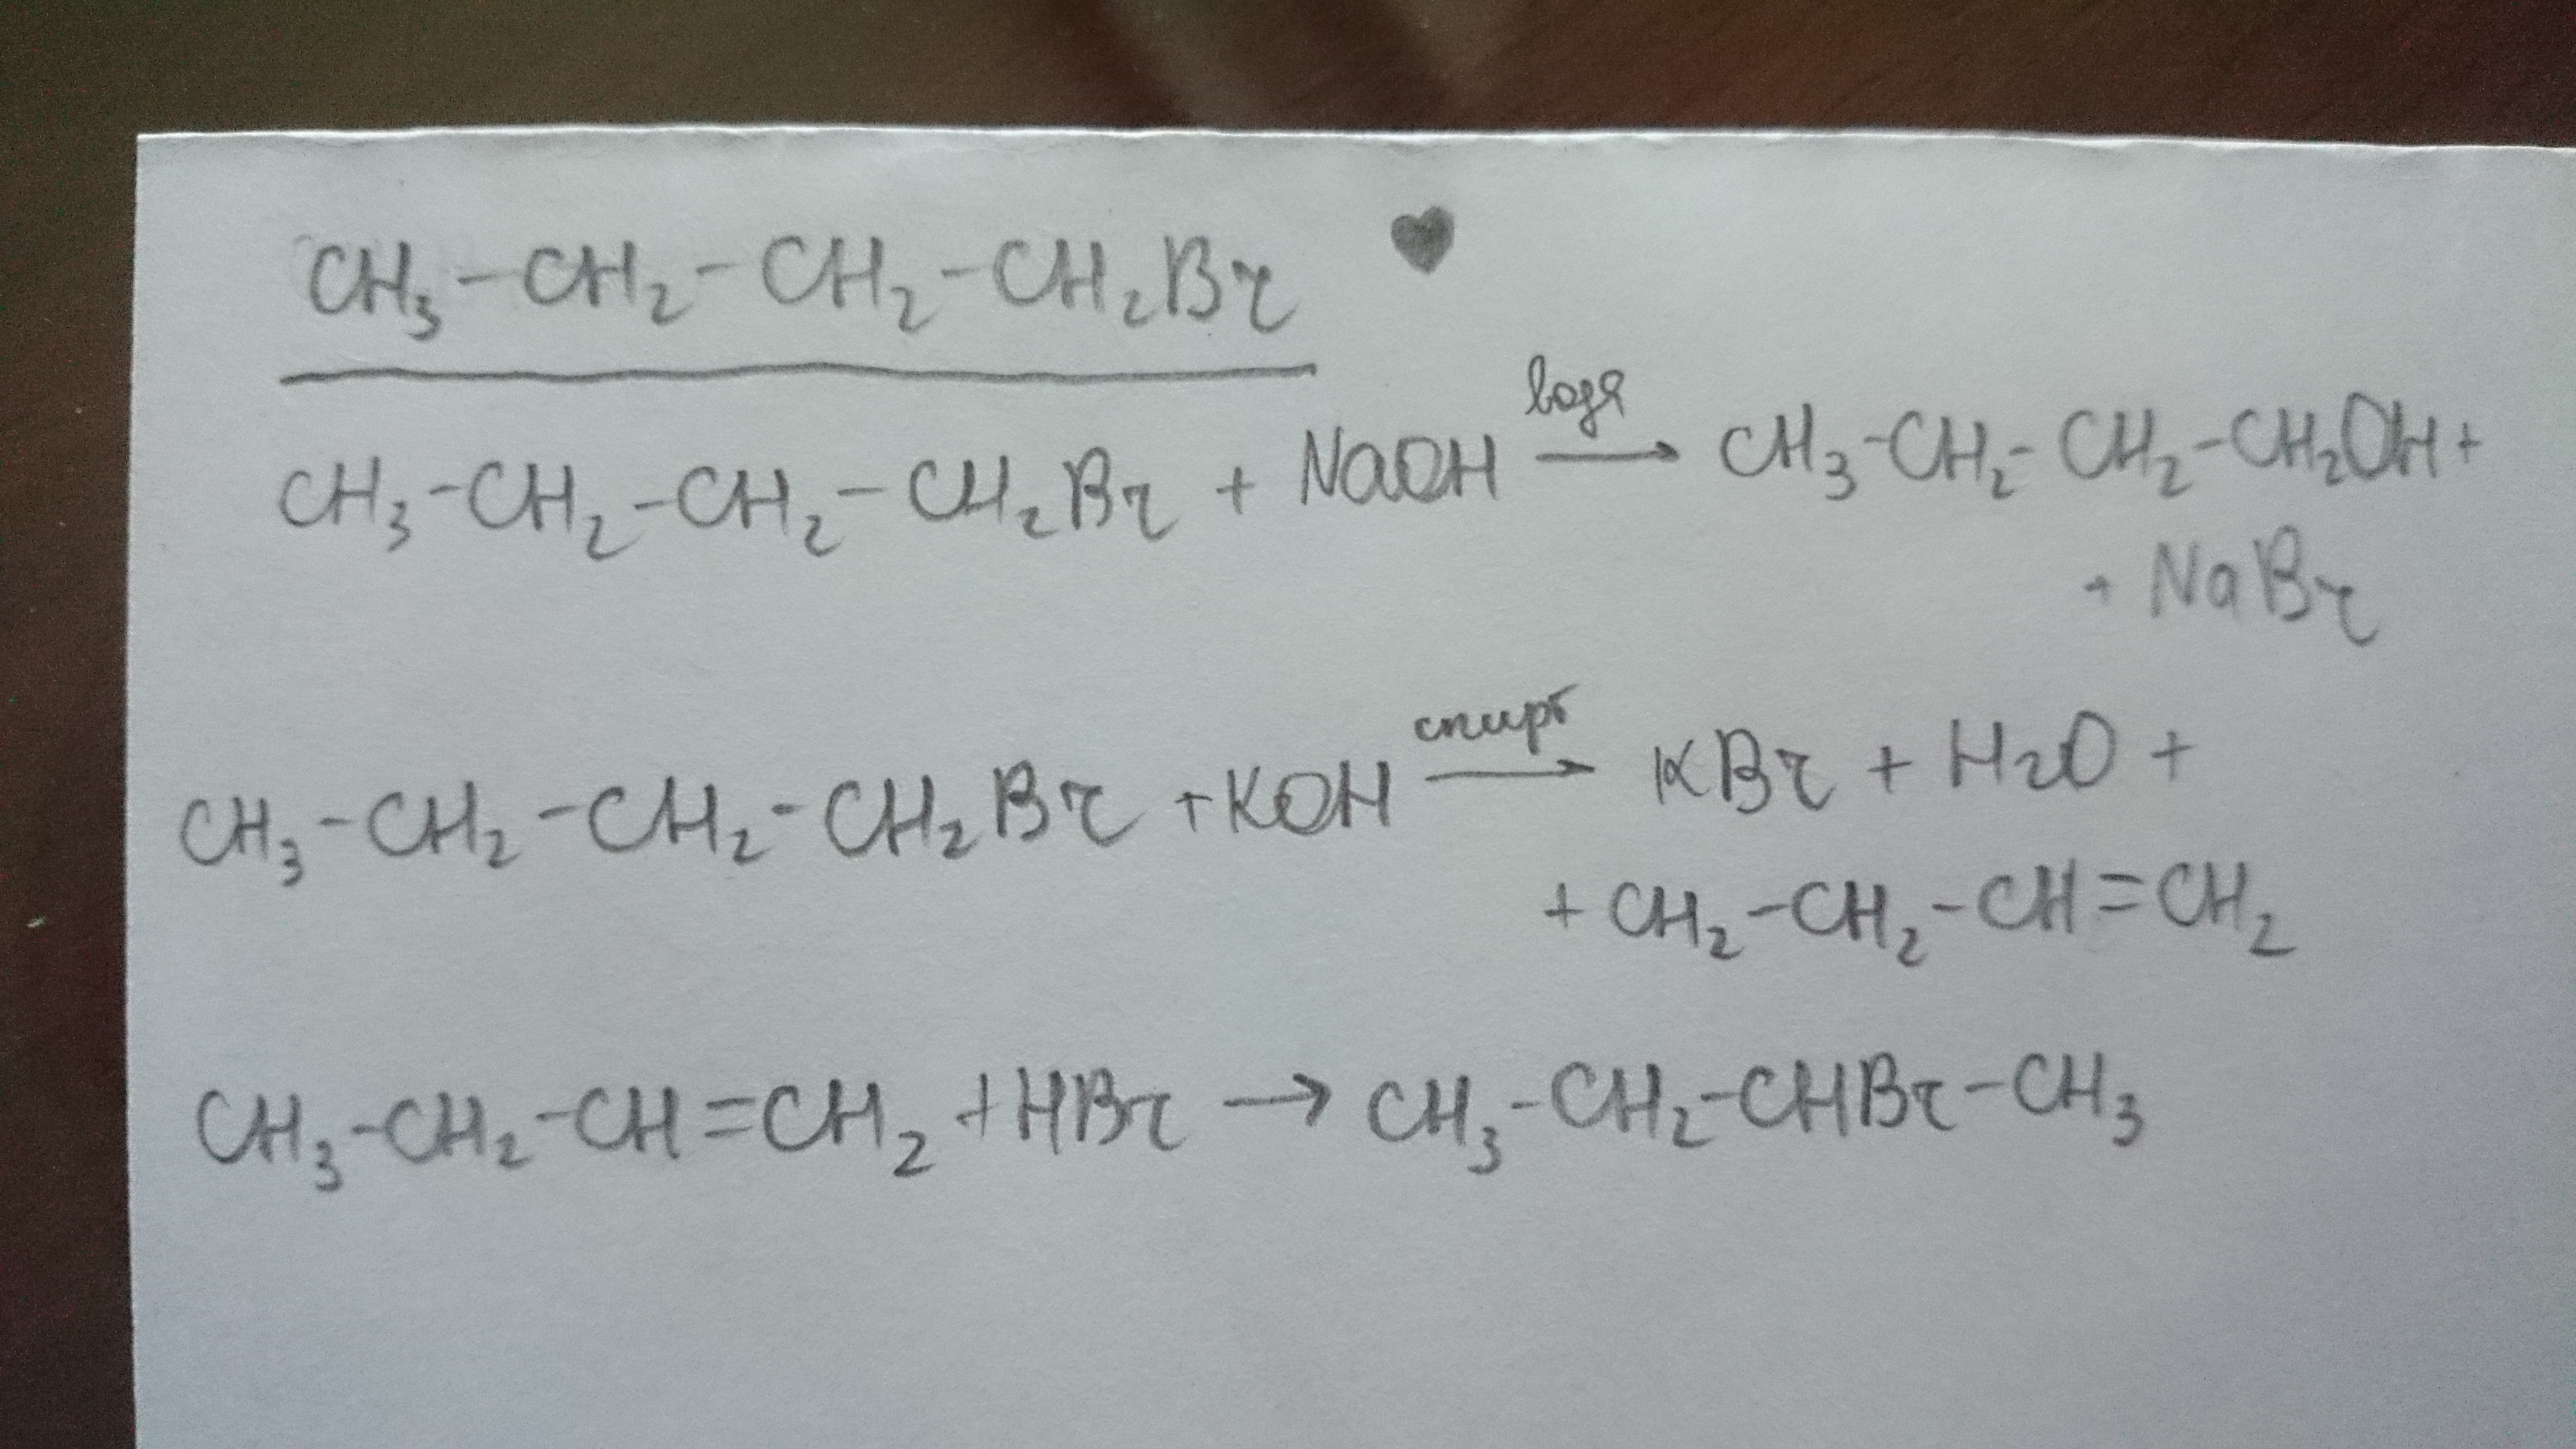 CH₃-CH₂-CH₂-CH₂Br ♥
CH₃-CH₂-CH₂-CH₂Br + NaOH вода → CH₃-CH₂-CH₂-CH₂OH +
+ NaBr
CH₃-CH₂-CH₂-CH₂Br + KOH спирт → KBr + H₂O +
+ CH₂-CH₂-CH=CH₂
CH₃-CH₂-CH=CH₂ + HBr → CH₃-CH₂-CHBr-CH₃